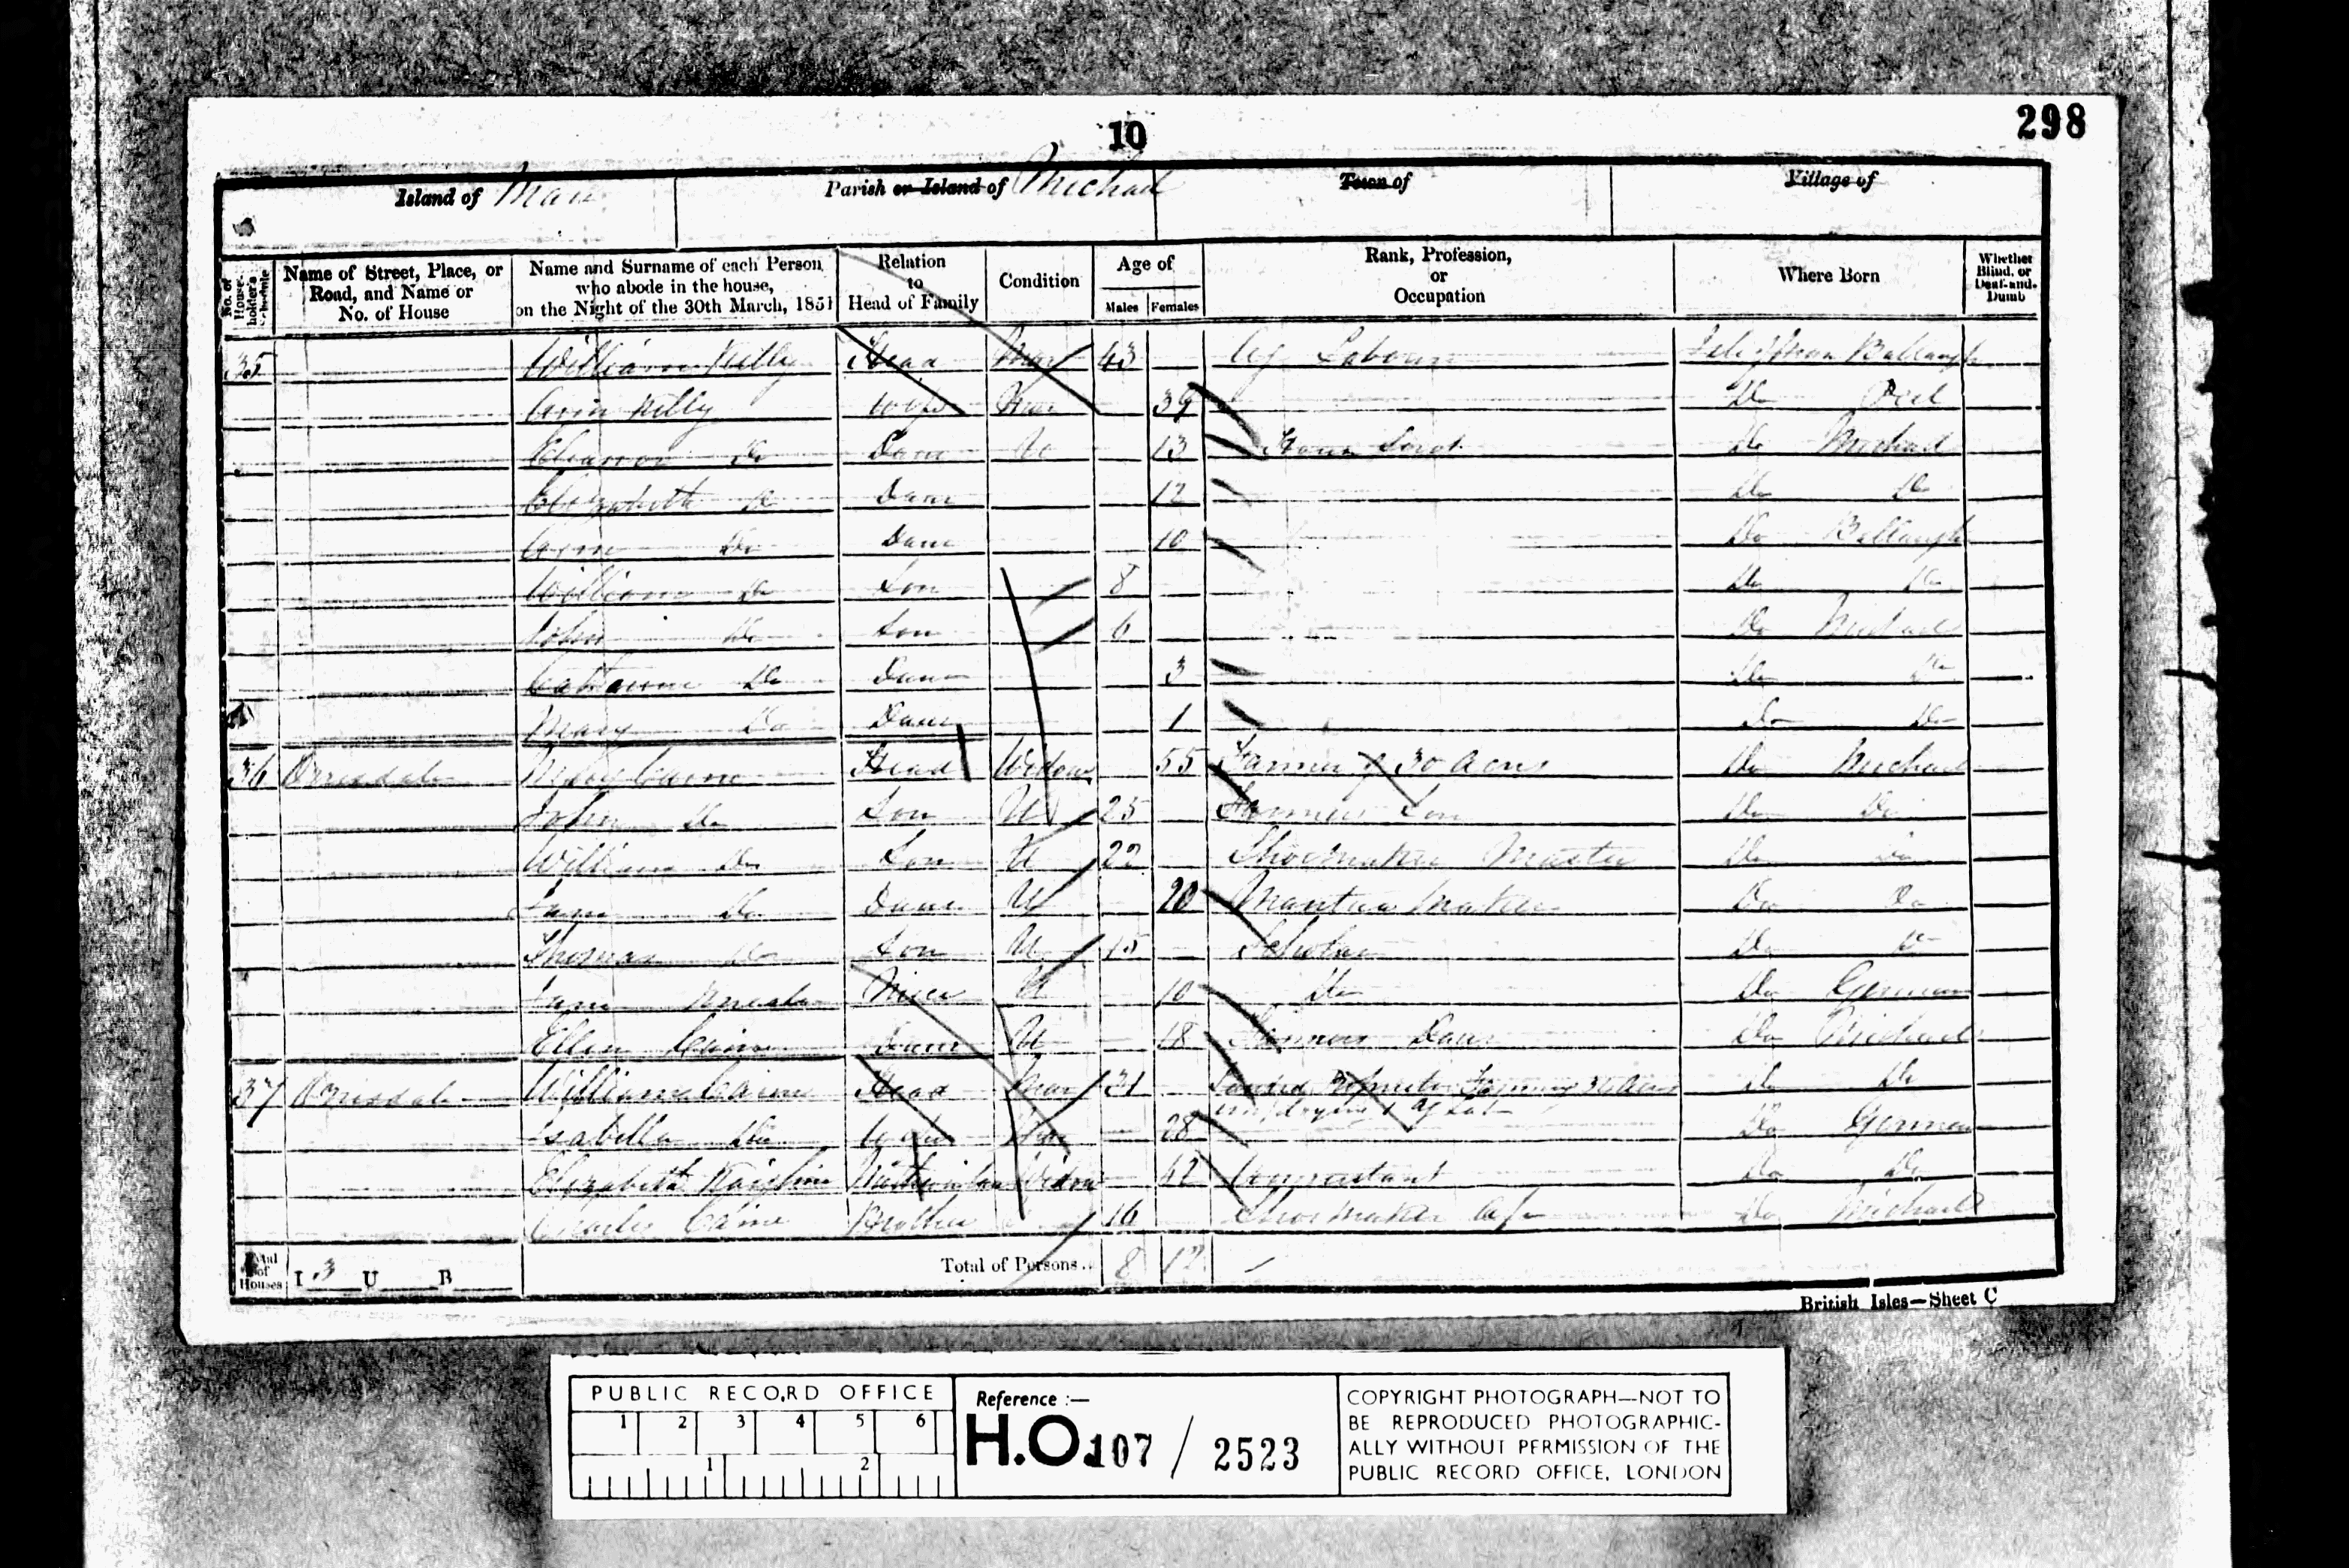 298
10
Island of Man
Parish or Island of Michael
Town of
Village of
No. of House-holder's Schedule
Name of Street, Place, or Road, and Name or No. of House
Name and Surname of each Person who abode in the house, on the Night of the 30th March, 1851
Relation to Head of Family
Condition
Age of
Males
Females
Rank, Profession, or Occupation
Where Born
Whether Blind, or Deaf-and-Dumb
35 William Kelly Head Mar 43 Ag Labourer Isle of Man Ballaugh
Ann Kelly Wife Mar 39 Do Peel
Eleanor Do Daur U 13 House Servt Do Michael
Elizabeth Do Daur 12 Do Do
Ann Do Daur 10 Do Ballaugh
William Do Son 8 Do Do
John Do Son 6 Do Michael
Catherine Do Daur 3 Do Do
Mary Do Daur 1 Do Do
36 Orrisdale Mary Caine Head Widow 55 Farmer of 30 Acres Do Michael
John Do Son U 25 Farmers Son Do Do
William Do Son U 22 Shoemaker Master Do Do
Jane Do Daur U 20 Mantua Maker Do Do
Thomas Do Son U 15 Scholar Do Do
Jane Niece U 10 Do Do German
Ellen Caine Daur U 18 Farmers Daur Do Michael
37 Orrisdale William Caine Head Mar 31 Landed Proprietor Farming Acres Do Do
employing 1 Ag Lab
Isabella Do Wife Mar 28 Do German
Elizabeth Mother in law Widow 42 Annuitant Do Do
Charles Caine Brother 16 Shoemaker App Do Michael
Total of Houses I 3 U B
Total of Persons.. 8 12
British Isles—Sheet C
PUBLIC RECORD OFFICE
1 2 3 4 5 6
1 2
Reference :—
H.O. 107 / 2523
COPYRIGHT PHOTOGRAPH—NOT TO
BE REPRODUCED PHOTOGRAPHIC-
ALLY WITHOUT PERMISSION OF THE
PUBLIC RECORD OFFICE, LONDON